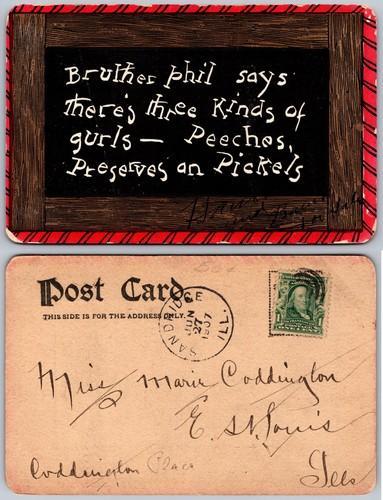 Bruther phil says
there's three Kinds of
gurls — Peeches,
Preserves an Pickels
Post Card.
THIS SIDE IS FOR THE ADDRESS ONLY.
SANDRIDGE ILL.
JUN
27
1907
1
Miss Marie Coddington
E St. Louis
Coddington Place
Ills